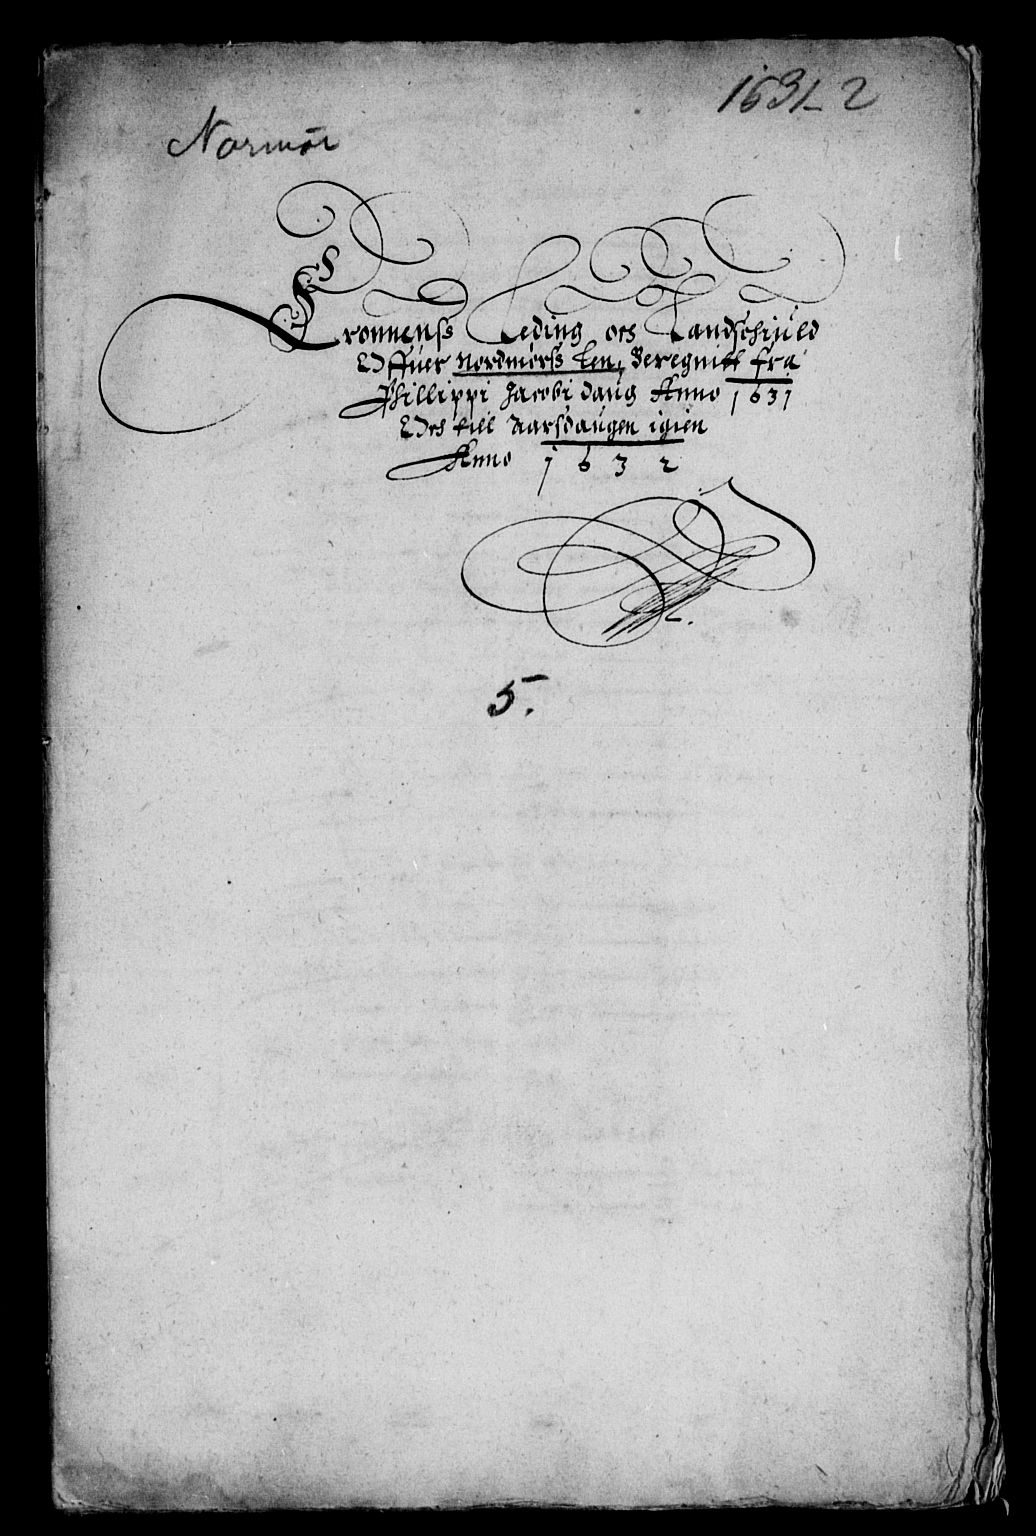 1631-2
Normør
Cronnens Leding och Landschyld
Offuer Nordmørs Len, Beregnitt fra
Phillippi Jacobi daug Anno 1631
Och till Aarsdaugen igien
Anno 1632
5.